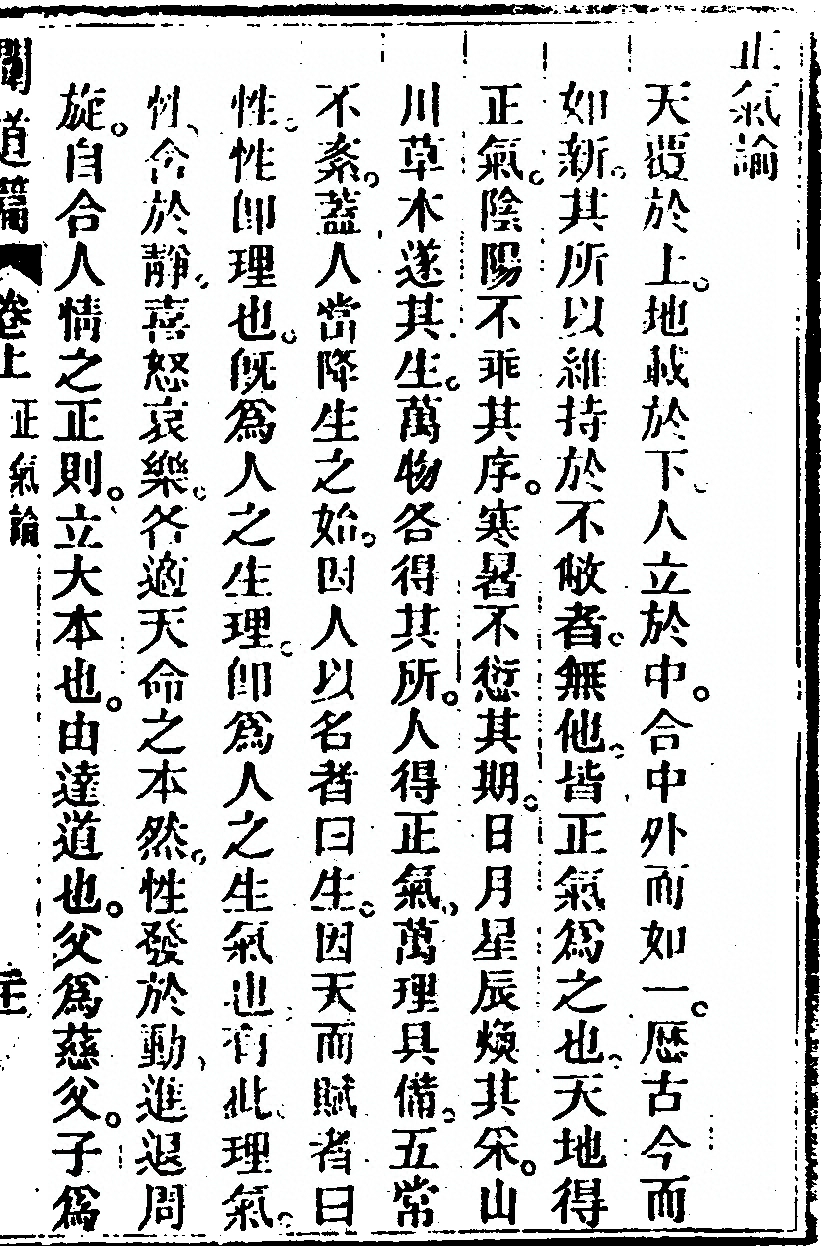 正氣論
天覆於上。地載於下。人立於中。合中外而如一。歷古今而
如新。其所以維持於不敝者。無他。皆正氣爲之也。天地得
正氣。陰陽不乖其序。寒暑不愆其期。日月星辰煥其采。山
川草木遂其生。萬物各得其所。人得正氣。萬理具備。五常
不紊。蓋人當降生之始。因人以名者曰生。因天而賦者曰
性。性卽理也。旣爲人之生理。卽爲人之生氣也。有此理氣。
性、含於靜。喜怒哀樂。各適天命之本然。性發於動、進退周
旋。自合人情之正則。立大本也。由達道也。父爲慈父。子爲
闡道篇 卷上 正氣論